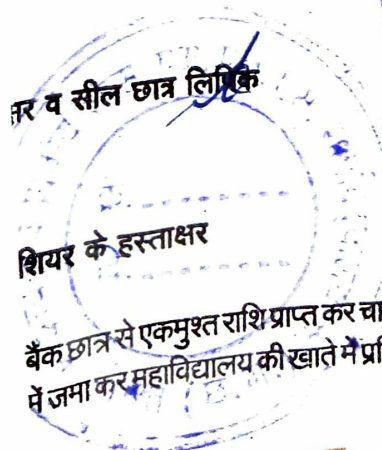 व सील छात्र लिपिक
के हस्ताक्षर
बैंक छात्र से एकमुश्त राशि प्राप्त कर
में जमा कर महाविद्यालय की खाते में